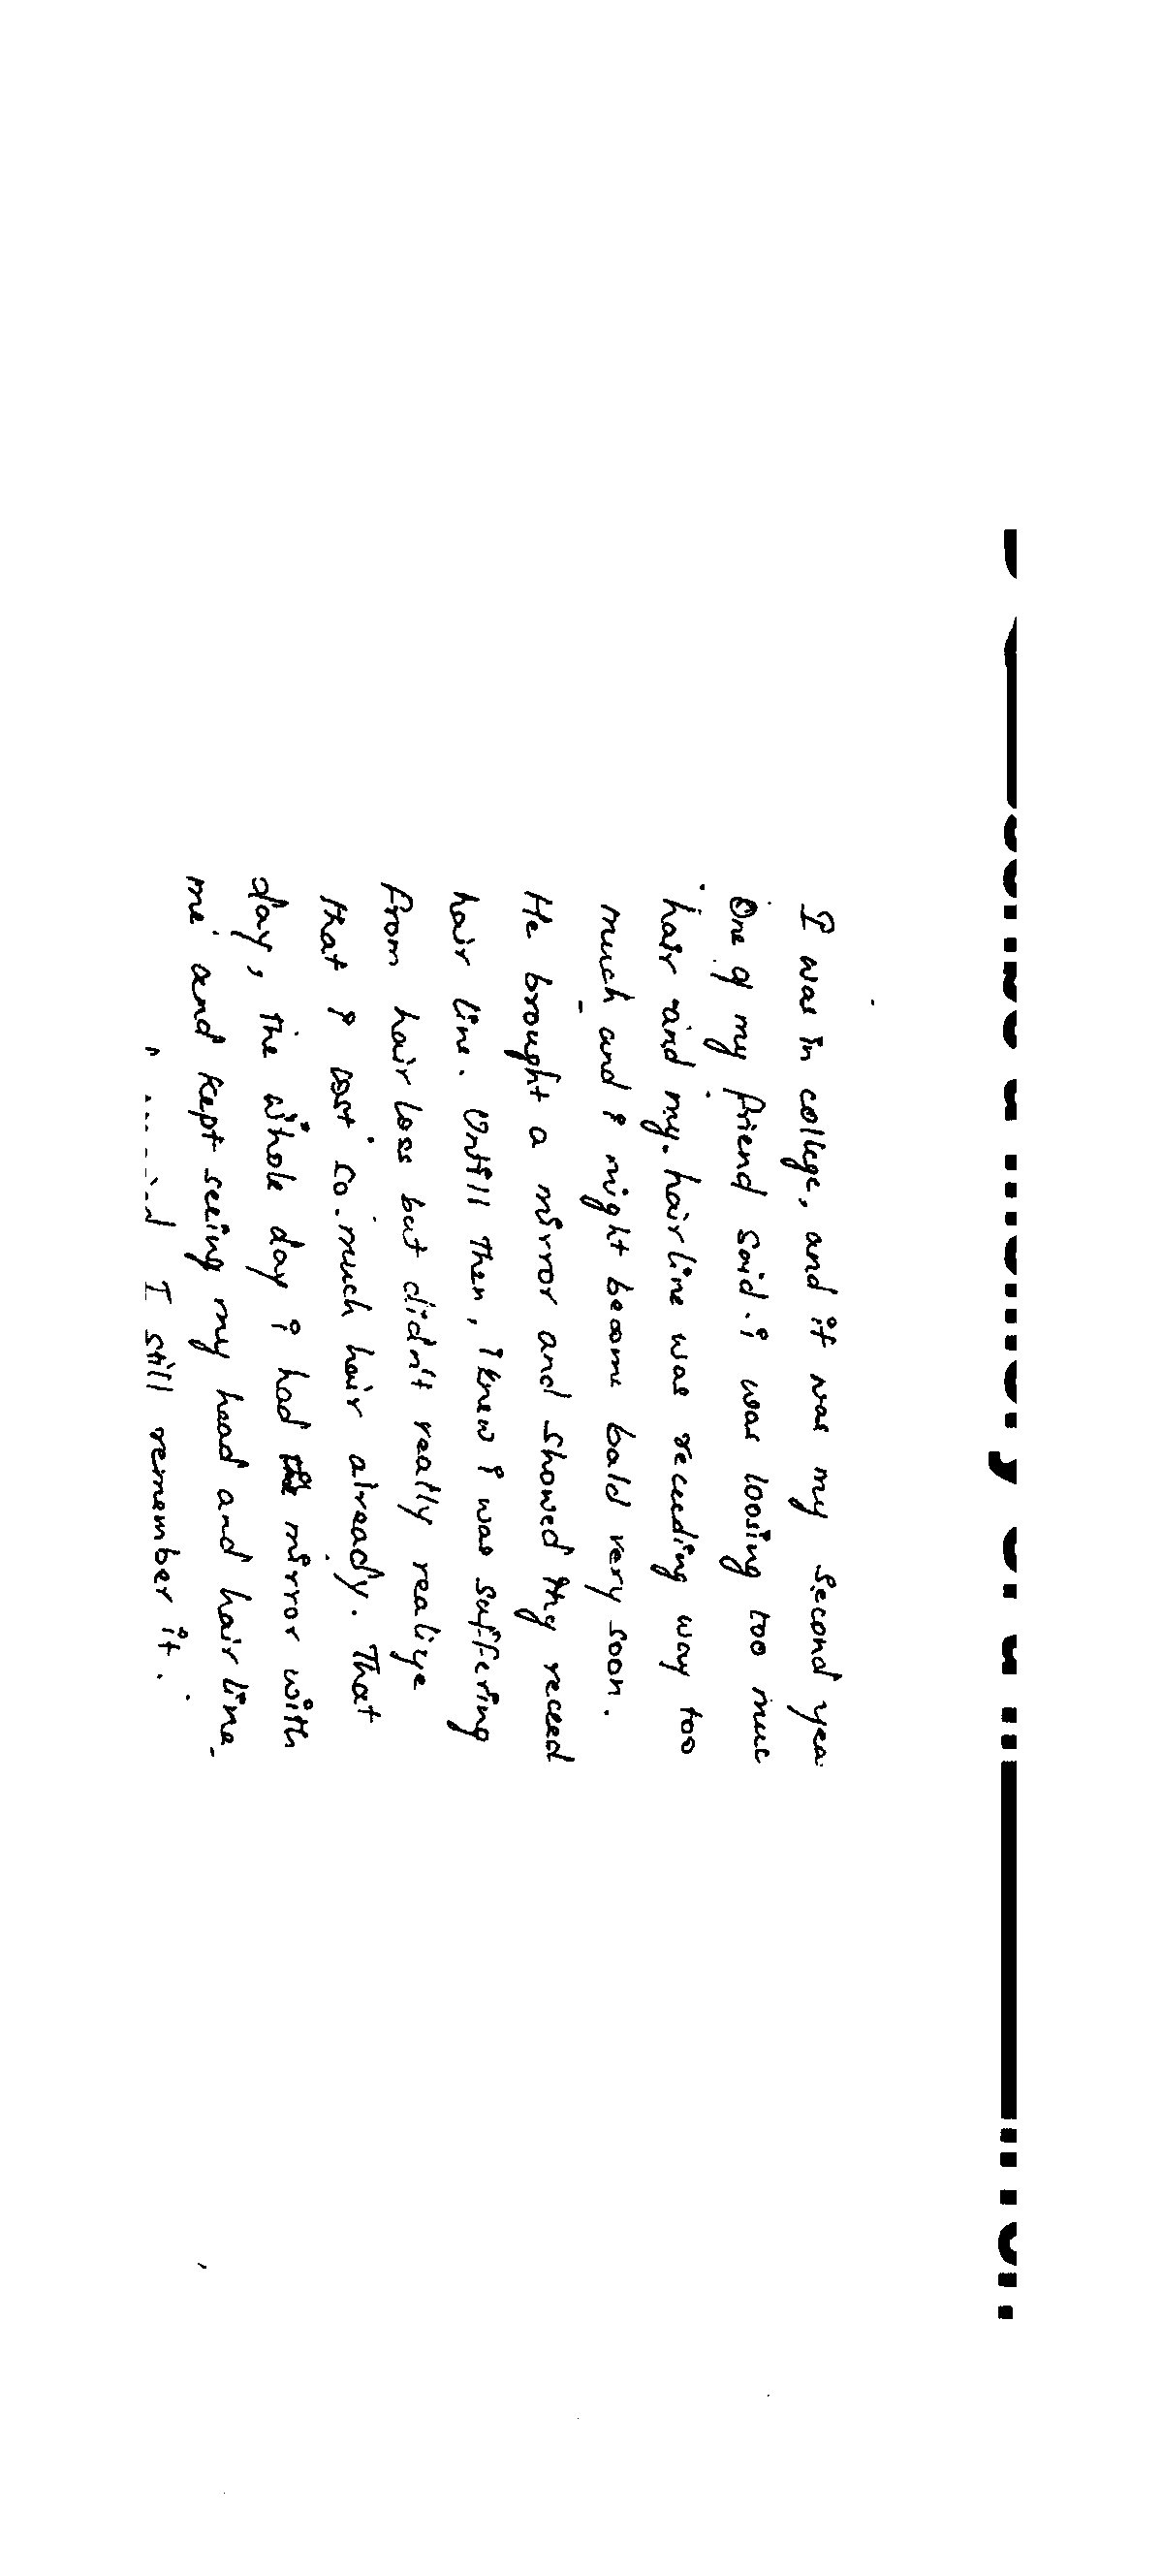 I was in college, and it was my second yea
One of my friend said i was loosing too muc
hair and my hairline was receeding way too
much and i might become bald very soon.
He brought a mirror and showed my receed
hair line. Untill then, i knew i was suffering
from hair loss but didn't really realize
that i lost so much hair already. That
day, the whole day i had the mirror with
me and kept seeing my head and hair line
I still remember it.